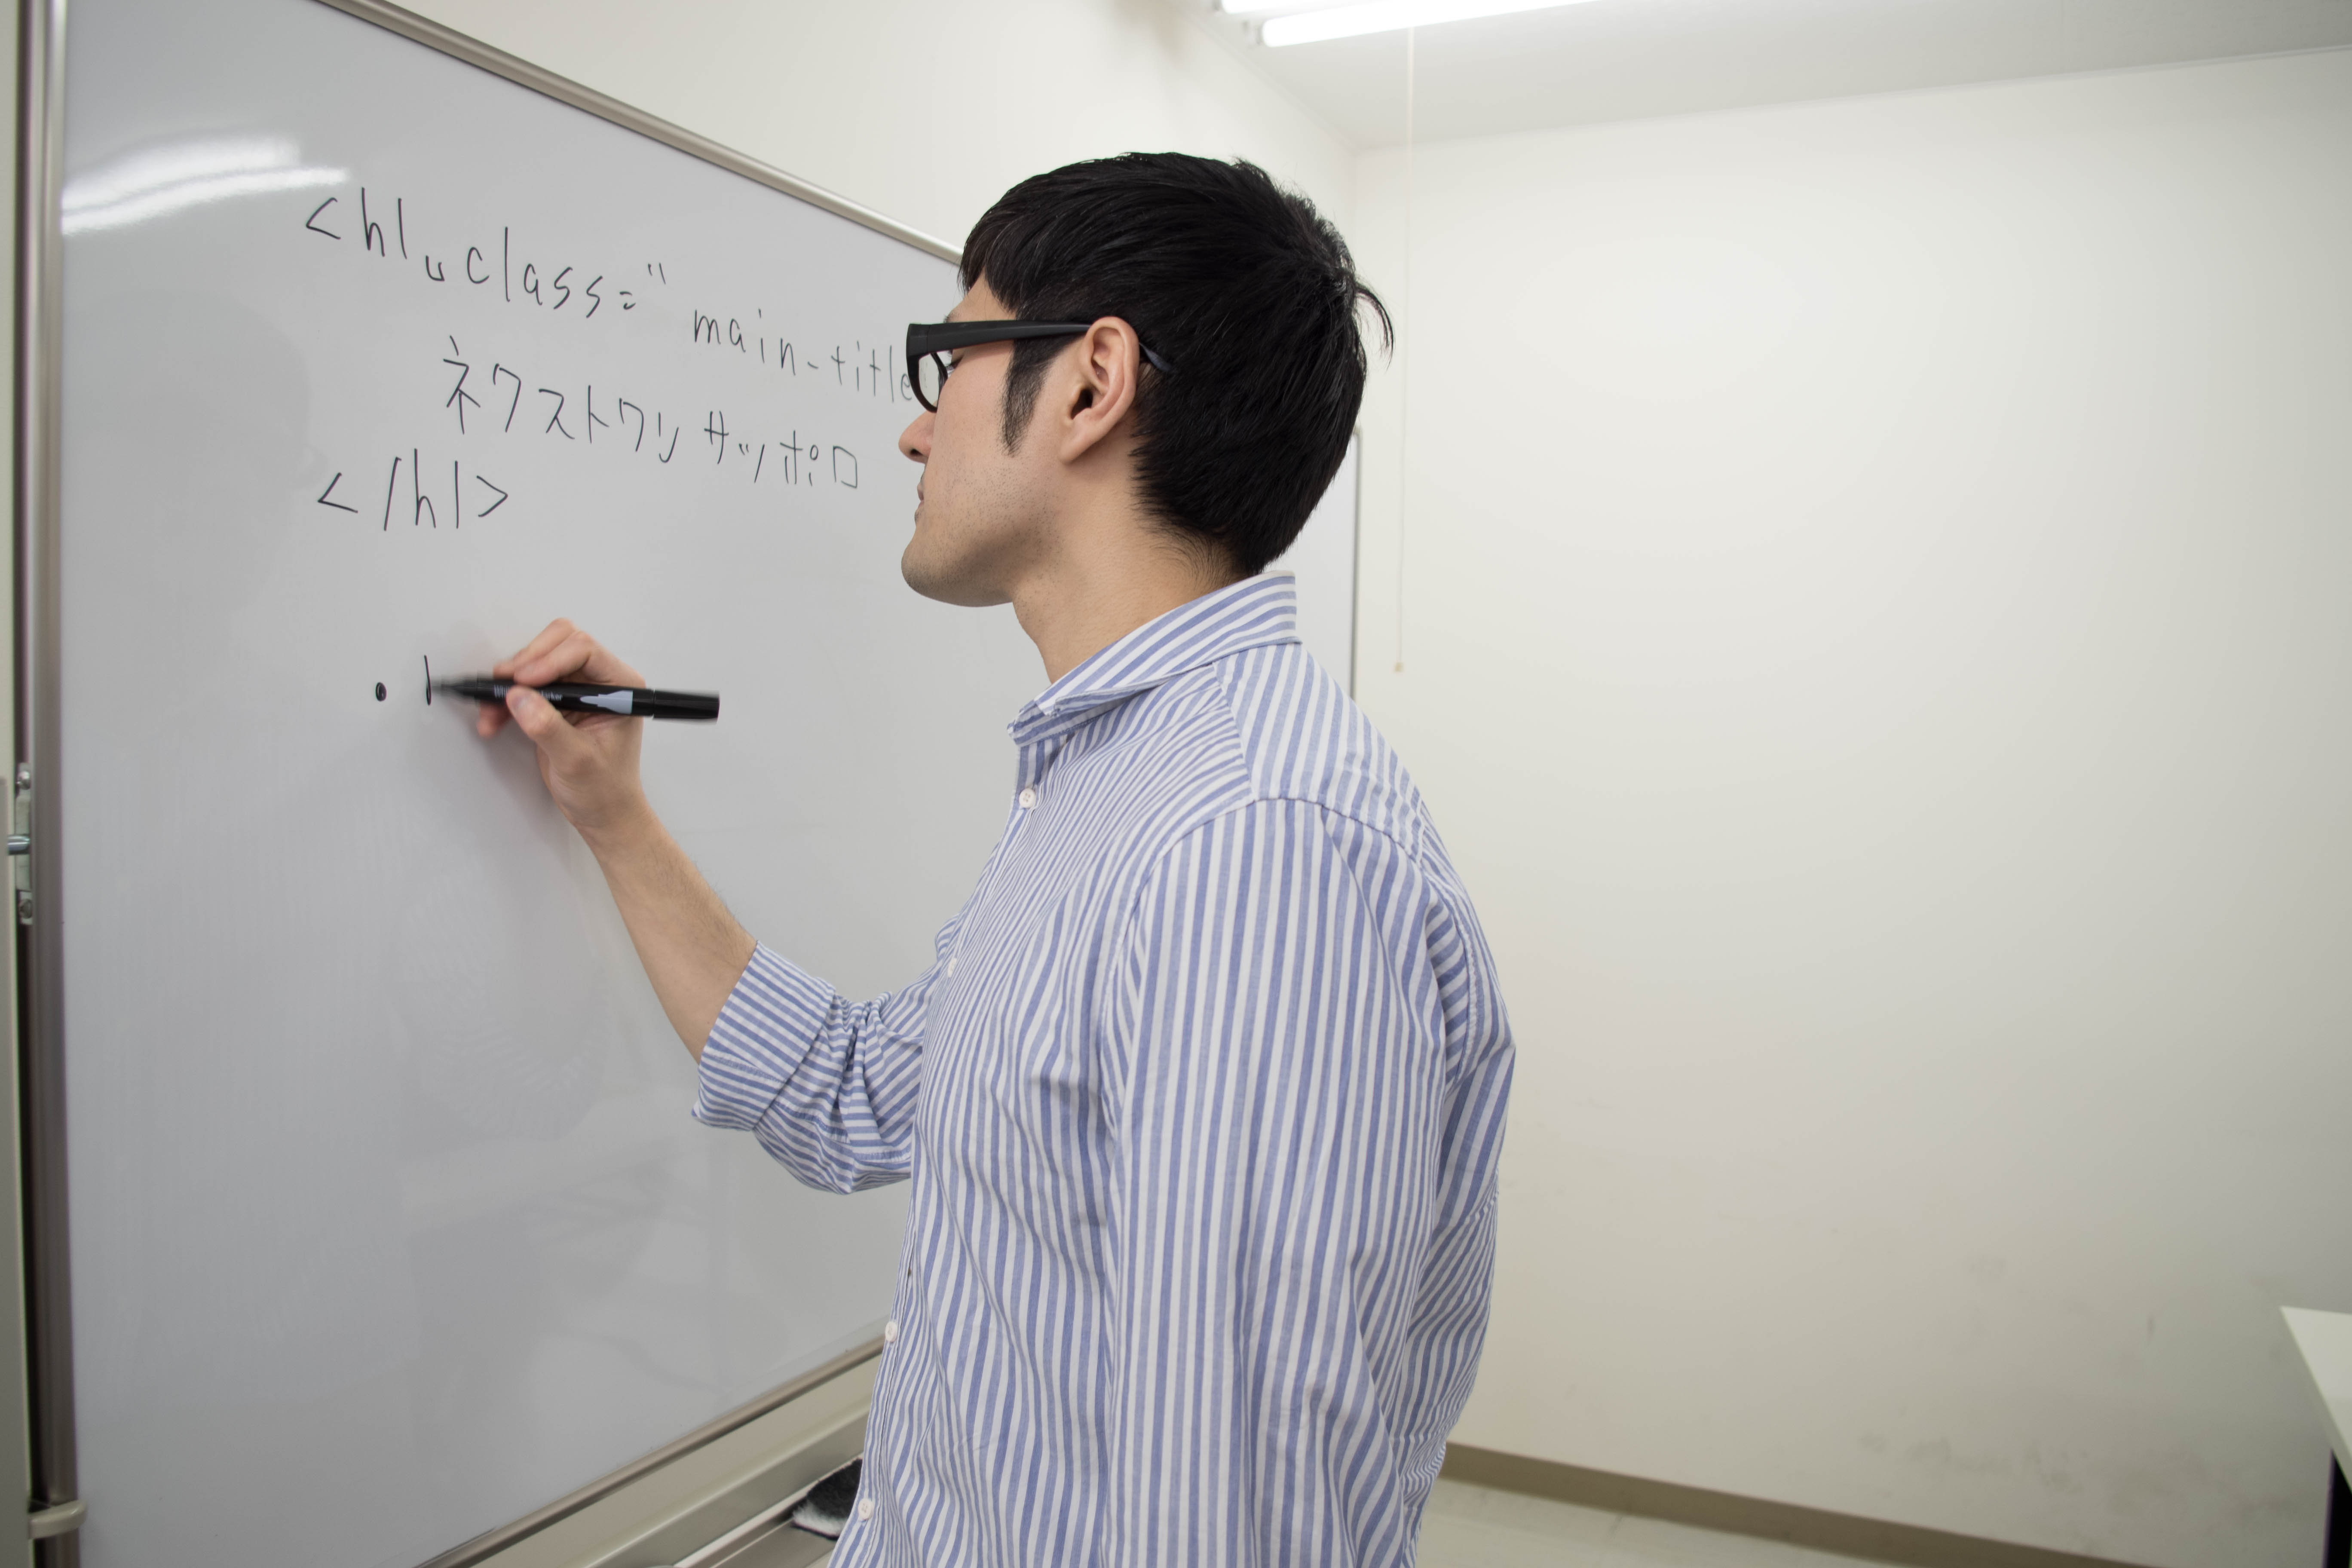 <h1␣class="main-title
ネクストワリ サッポロ
</h1>